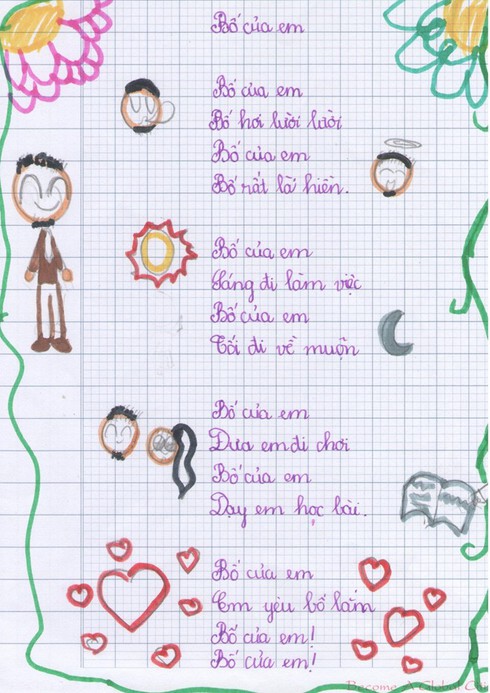 Bố của em
Bố của em
Bố hơi lười lười
Bố của em
Bố rất là hiền.
Bố của em
Sáng đi làm việc
Bố của em
Tối đi về muộn
Bố của em
Đưa em đi chơi
Bố của em
Dạy em học bài.
Bố của em
Em yêu bố lắm
Bố của em!
Bố của em!
Become A Global